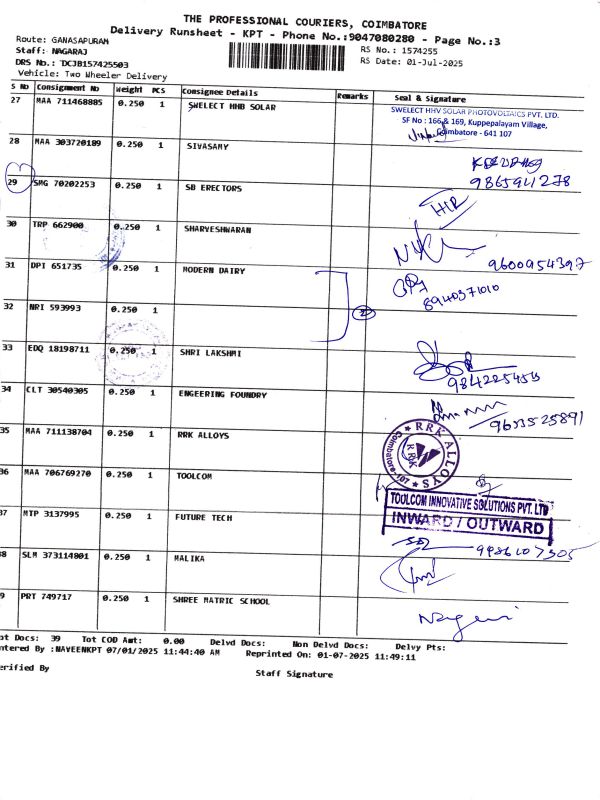 THE PROFESSIONAL COURIERS, COIMBATORE
Delivery Runsheet - KPT - Phone No.:9047080280 - Page No.:3
Route: GANASAPURAM
RS No.: 1574255
Staff: NAGARAJ
RS Date: 01-Jul-2025
DRS No.: TDCJB157425503
Vehicle: Two Wheeler Delivery
S No Consignment No Weight PCS Consignee Details Remarks Seal & Signature
27 MAA 711468885 0.250 1 SWELECT HHB SOLAR
SWELECT HHV SOLAR PHOTOVOLTAICS PVT. LTD.
SF No : 166 & 169, Kuppepalayam Village,
Coimbatore - 641 107
28 MAA 303720189 0.250 1 SIVASAMY
9865941278
29 SMG 70202253 0.250 1 SB ERECTORS
30 TRP 662900 0.250 1 SHARVESHWARAN
9600954397
31 DPI 651735 0.250 1 MODERN DAIRY
8940371010
32 NRI 593993 0.250 1
2
33 EDQ 18198711 0.250 1 SHRI LAKSHMI
34 CLT 30540305 0.250 1 ENGEERING FOUNDRY
9655525891
35 MAA 711138704 0.250 1 RRK ALLOYS
RRK ALLOYS
RRK
Coimbatore-107
36 MAA 706769270 0.250 1 TOOLCOM
TOOLCOM INNOVATIVE SOLUTIONS PVT. LTD
INWARD / OUTWARD
37 MTP 3137995 0.250 1 FUTURE TECH
9986107305
38 SLM 373114801 0.250 1 MALIKA
39 PRT 749717 0.250 1 SHREE MATRIC SCHOOL
pt Docs: 39 Tot COD Amt: 0.00 Delvd Docs: Non Delvd Docs: Delvy Pts:
ntered By :NAVEENKPT 07/01/2025 11:44:40 AM Reprinted On: 01-07-2025 11:49:11
erified By
Staff Signature